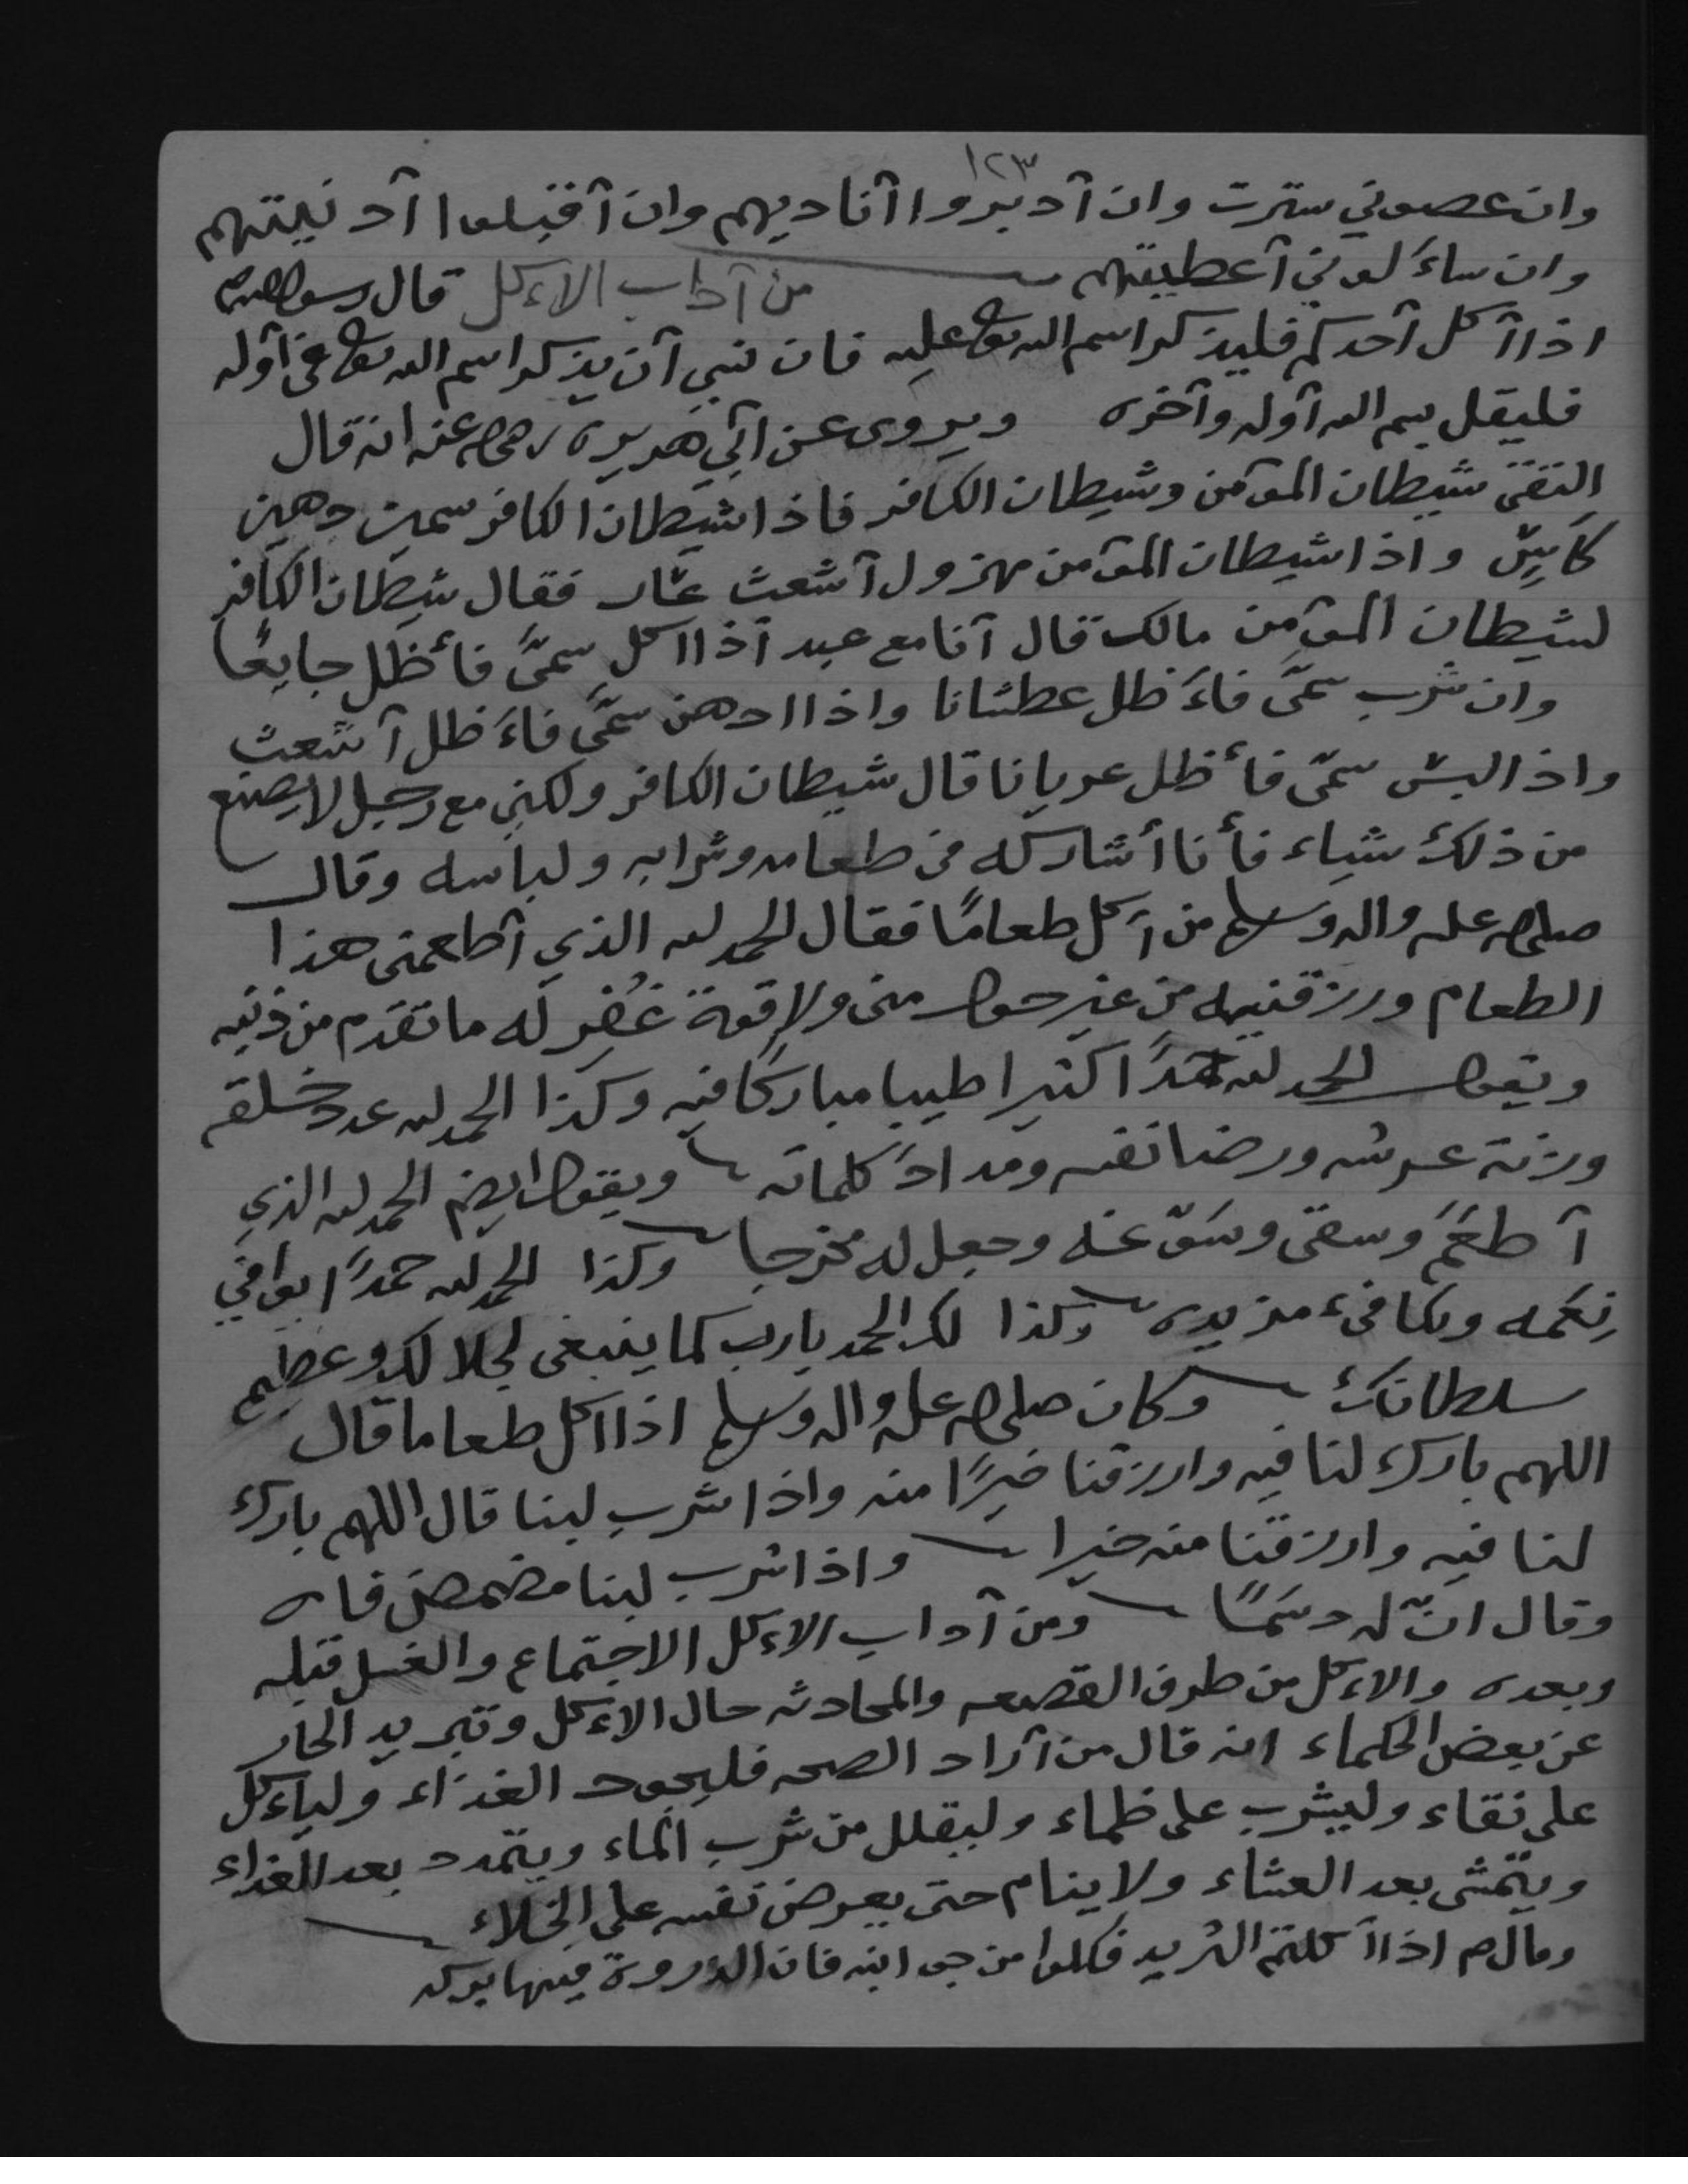 ١٢٣
وان عصوني سترت وان آدبروا آناديهم وان آقبلوا آدنيتهم
وان ساءَلوني آعطيتهم من آداب الاءكل قال رسول الله
اذا آكل آحدكم فليذكر اسم الله تعالى عليه فان نسي آن يذكر اسم الله تعالى في آوله
فليقل بسم الله آوله وآخره ويروى عن آبي هريره رضي الله عنه انه قال
التقى شيطان المؤمن وشيطان الكافر فاذا شيطان الكافر سمين دهين
كاسٍ واذا شيطان المؤمن مهزول آشعث عار فقال شيطان الكافر
لشيطان المؤمن مالك قال آنا مع عبد آذا اكل سمَّى فأظل جايعًا
وان شرب سمَّى فاءَظل عطشانا واذا ادهن سمَّى فاءَظل آشعث
واذا لبس سمّى فأظل عريانا قال شيطان الكافر ولكني مع رجل لا يصنع
من ذلك شياء فأنا أشاركه في طعامه وشرابه ولباسه وقال
صلى الله عليه واله وسلم من آكل طعامًا فقال الحمد لله الذي آطعمني هذا
الطعام ورزقنيه من غير حول مني ولا قوة غُفِر له ما تقدم من ذنبه
ويقول الحمد لله حمدًا كثيرا طيبا مباركًا فيه وكذا الحمد لله عدد خلقه
وزنة عرشه ورضا نفسه ومدادَ كلماته ويقول ايضا الحمد لله الذي
آطعَمَ وسقى وسَوّغه وجعل له مخرجا وكذا الحمد لله حمدًا يوافي
نِعَمه ويكافىء مزيده وكذا لك الحمد يارب كما ينبغي لجلالك وعظيم
سلطانك وكان صلى الله عليه واله وسلم اذا اكل طعاما قال
اللهم بارك لنا فيه وارزقنا خيرًا منه واذا شرب لبنا قال اللهم بارك
لنا فيه وارزقنا منه خيرا واذا شرب لبنا مضمض فاه
وقال انّ له دسَمًا ومن آداب الاءكل الاجتماع والغسل قبله
وبعده والاءكل من طرف القصعه والمحادثه حال الاءكل وتبريد الحار
عن بعض الحكماء انه قال من آراد الصحه فليجود الغذاء ولياءكل
على نقاء وليشرب على ظماء وليقلل من شرب الماء ويتمدد بعد الغداء
ويتمشى بعد العشاء ولا ينام حتى يعرض نفسه على الخلاء
وقال صم اذا آكلتم الثريد فكلوا من جوانبه فان الذروة فيها بركه